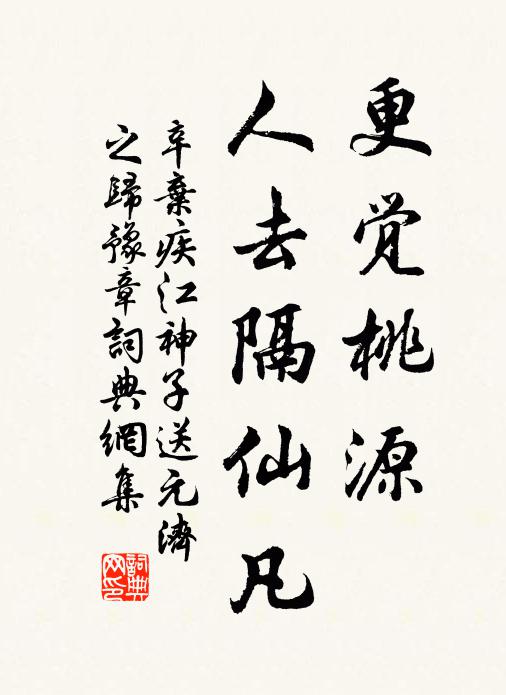 更觉桃源
人去隔仙凡
辛棄疾江神子送元濟
之歸豫章詞典網集
詞典
网印